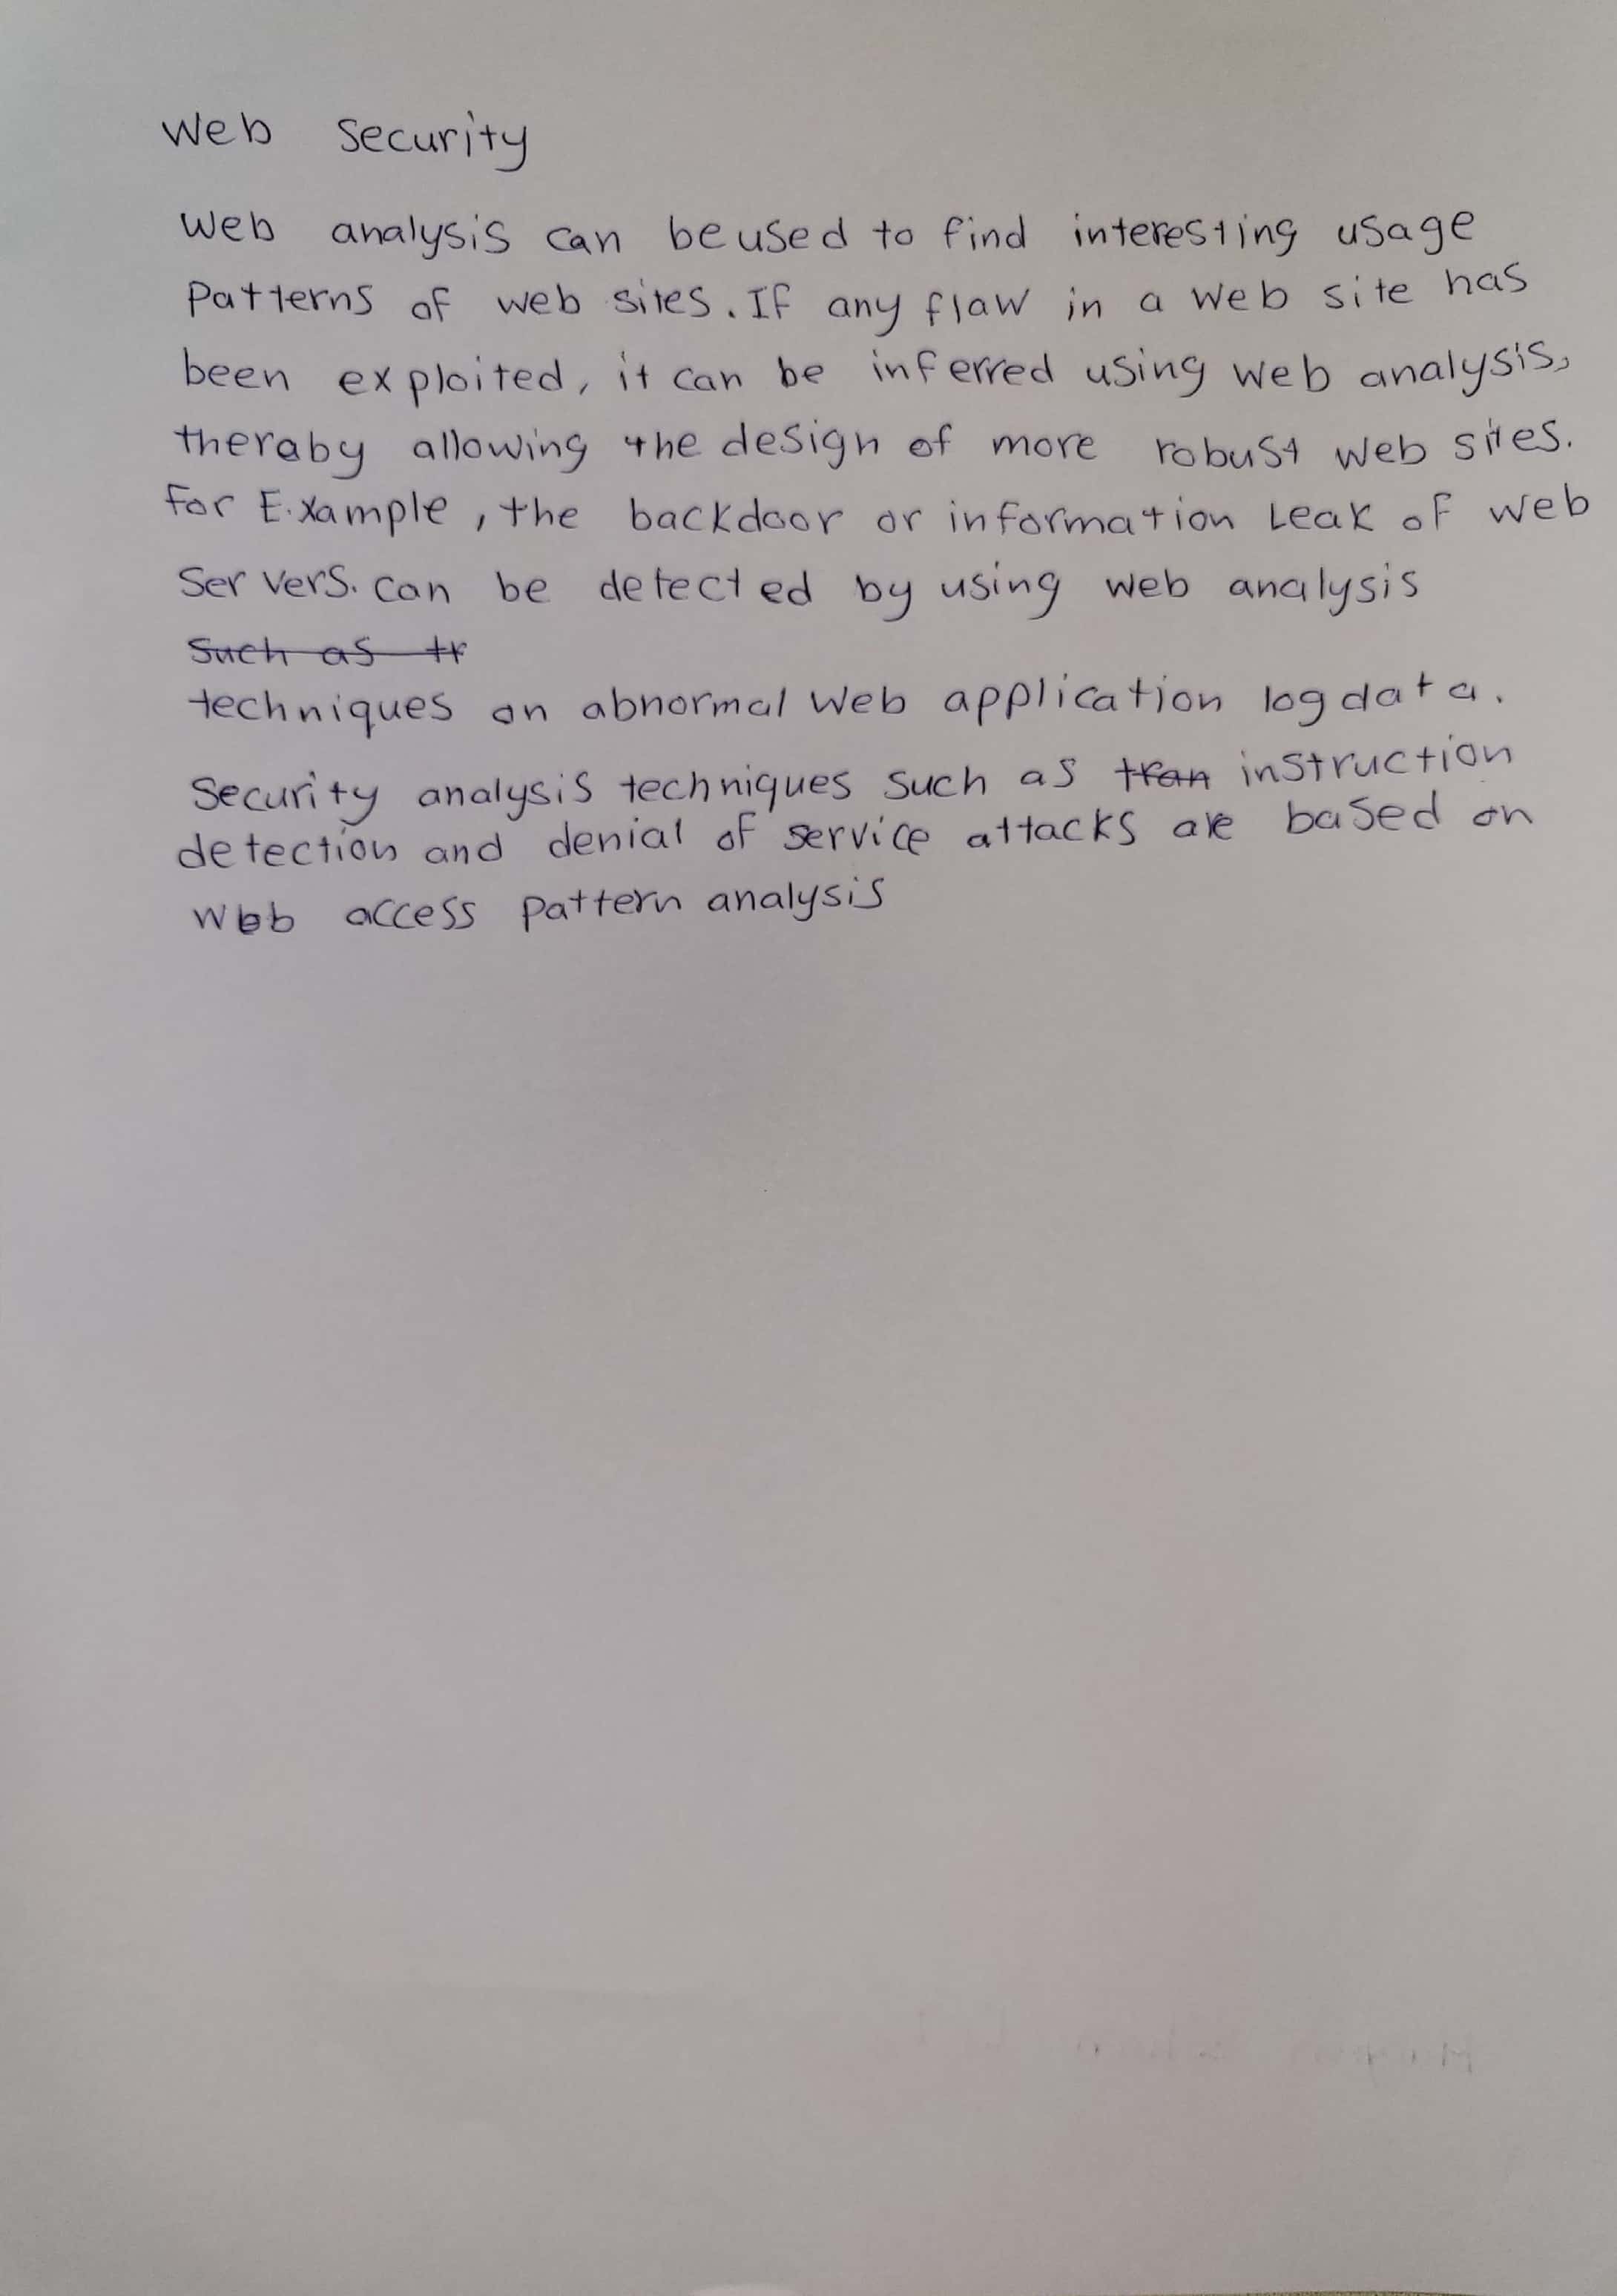 Web Security
Web analysis can be used to find interesting usage
Patterns of web sites. If any flaw in a web site has
been exploited, it can be inferred using web analysis,
theraby allowing the design of more robust web sites.
for E.xample, the backdoor or information Leak of web
Servers. can be detected by using web analysis
Such as tr
techniques on abnormal Web application log data.
Security analysis techniques such as tran instruction
detection and denial of service attacks are based on
Web access pattern analysis